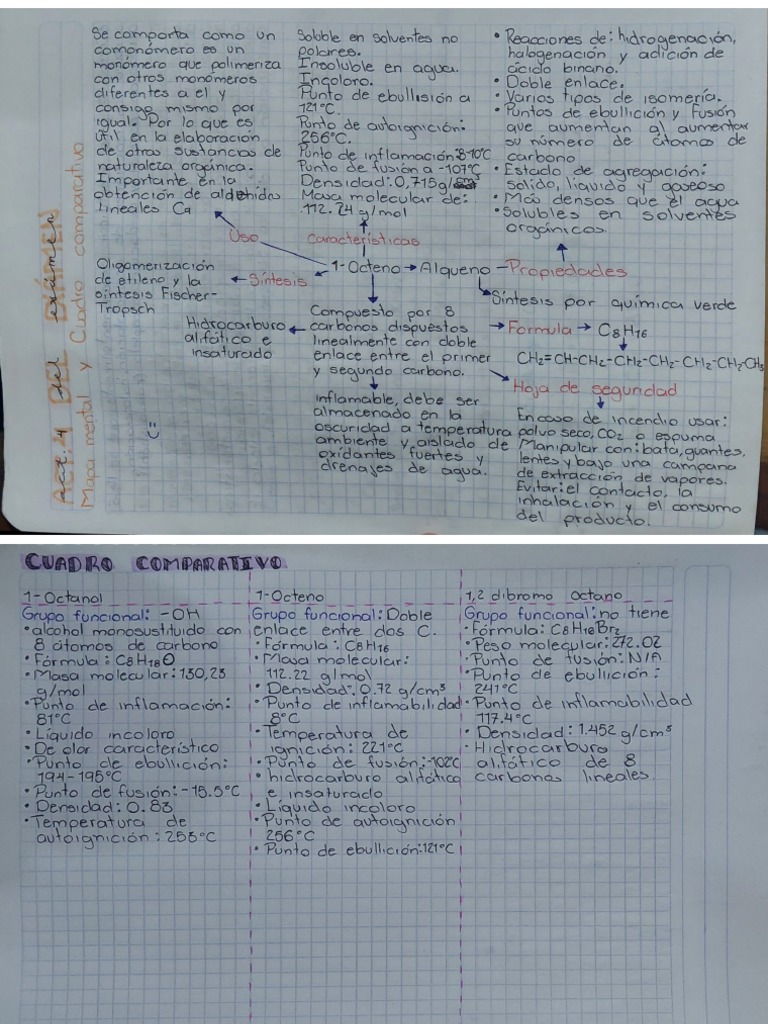 Act. 4 del EXÁMEN
Mapa mental y Cuadro comparativo
Se comporta como un
comonómero es un
monómero que polimeriza
con otros monómeros
diferentes a el y
consigo mismo por
igual. Por lo que es
útil en la elaboración
de otras sustancias de
naturaleza orgánica.
Importante en la
obtención de aldehidos
lineales C9
Soluble en solventes no
polares.
Insoluble en agua.
Incoloro.
Punto de ebullisión a
121°C.
Punto de autoignición:
256°C.
Punto de inflamación: 8-10°C
Punto de fusión a -107°C
Densidad: 0,715g/cm3
Masa molecular de:
112.24 g/mol
• Reacciones de: hidrogenación,
halogenación y adición de
ácido binario.
• Doble enlace.
• Varios tipos de isomería.
• Puntos de ebullición y fusión
que aumentan al aumentar
su número de átomos de
carbono
• Estado de agregación:
solido, liquido y gaseoso
• Más densos que el agua
• Solubles en solventes
orgánicos.
Uso
características
1-Octeno → Alqueno - Propiedades
Síntesis
Oligomerización
de etileno y la
síntesis Fischer-
Tropsch
Síntesis por química verde
Hidrocarburo
alifático e
insaturado
Compuesto por 8
carbonos dispuestos
linealmente con doble
enlace entre el primer
y segundo carbono.
→ Formula → C8H16
CH2=CH-CH2-CH2-CH2-CH2-CH2-CH3
Hoja de seguridad
C=
Inflamable, debe ser
almacenado en la
oscuridad a temperatura
ambiente y aislado de
oxidantes fuertes y
drenajes de agua.
En caso de incendio usar:
polvo seco, CO2 o espuma
Manipular con: bata, guantes,
lentes y bajo una campana
de extracción de vapores.
Evitar: el contacto, la
inhalación y el consumo
del producto.
CUADRO COMPARATIVO
1-Octanol
Grupo funcional: -OH
• alcohol monosustituido con
8 átomos de carbono
• Fórmula: C8H18O
• Masa molecular: 130,23
g/mol
• Punto de inflamación:
81°C
• Líquido incoloro
• De olor característico
• Punto de ebullición:
194-195°C
• Punto de fusión: -15.5°C
• Densidad: 0.83
• Temperatura de
autoignición: 253°C
1-Octeno
Grupo funcional: Doble
enlace entre dos C.
• Fórmula: C8H16
• Masa molecular:
112.22 g/mol
• Densidad: 0.72 g/cm3
• Punto de inflamabilidad
8°C
• Temperatura de
ignición: 221°C
• Punto de fusión: -102C
• hidrocarburo alifático
e insaturado
• Líquido incoloro
• Punto de autoignición
256°C
• Punto de ebullición: 121°C
1,2 dibromo octano
Grupo funcional: no tiene
• Fórmula: C8H16Br2
• Peso molecular: 272.02
• Punto de fusión: N/A
• Punto de ebullición:
241°C
• Punto de inflamabilidad
117.4°C
• Densidad: 1.452 g/cm3
• Hidrocarburo
alifático de 8
carbonos lineales.